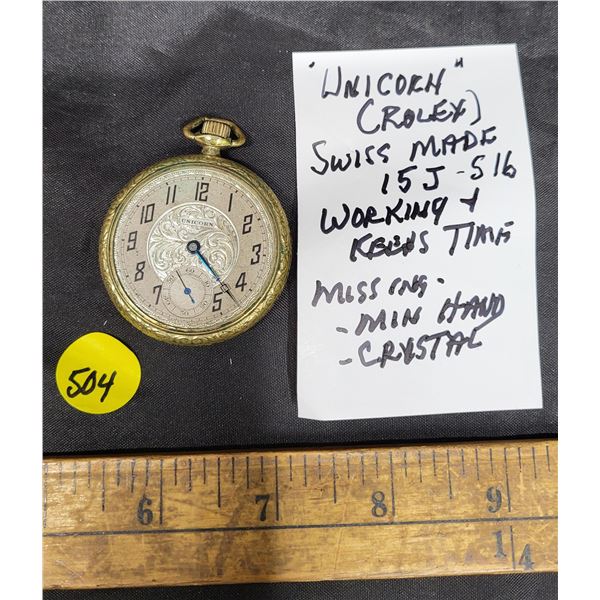 "UNICORN"
(ROLEX)
SWISS MADE
15J - S16
WORKING +
KEEPS TIME
MISSING -
- MIN HAND
- CRYSTAL
12
11
1
10
2
9
3
8
4
7
5
UNICORN
504
6 7 8 9
1
4